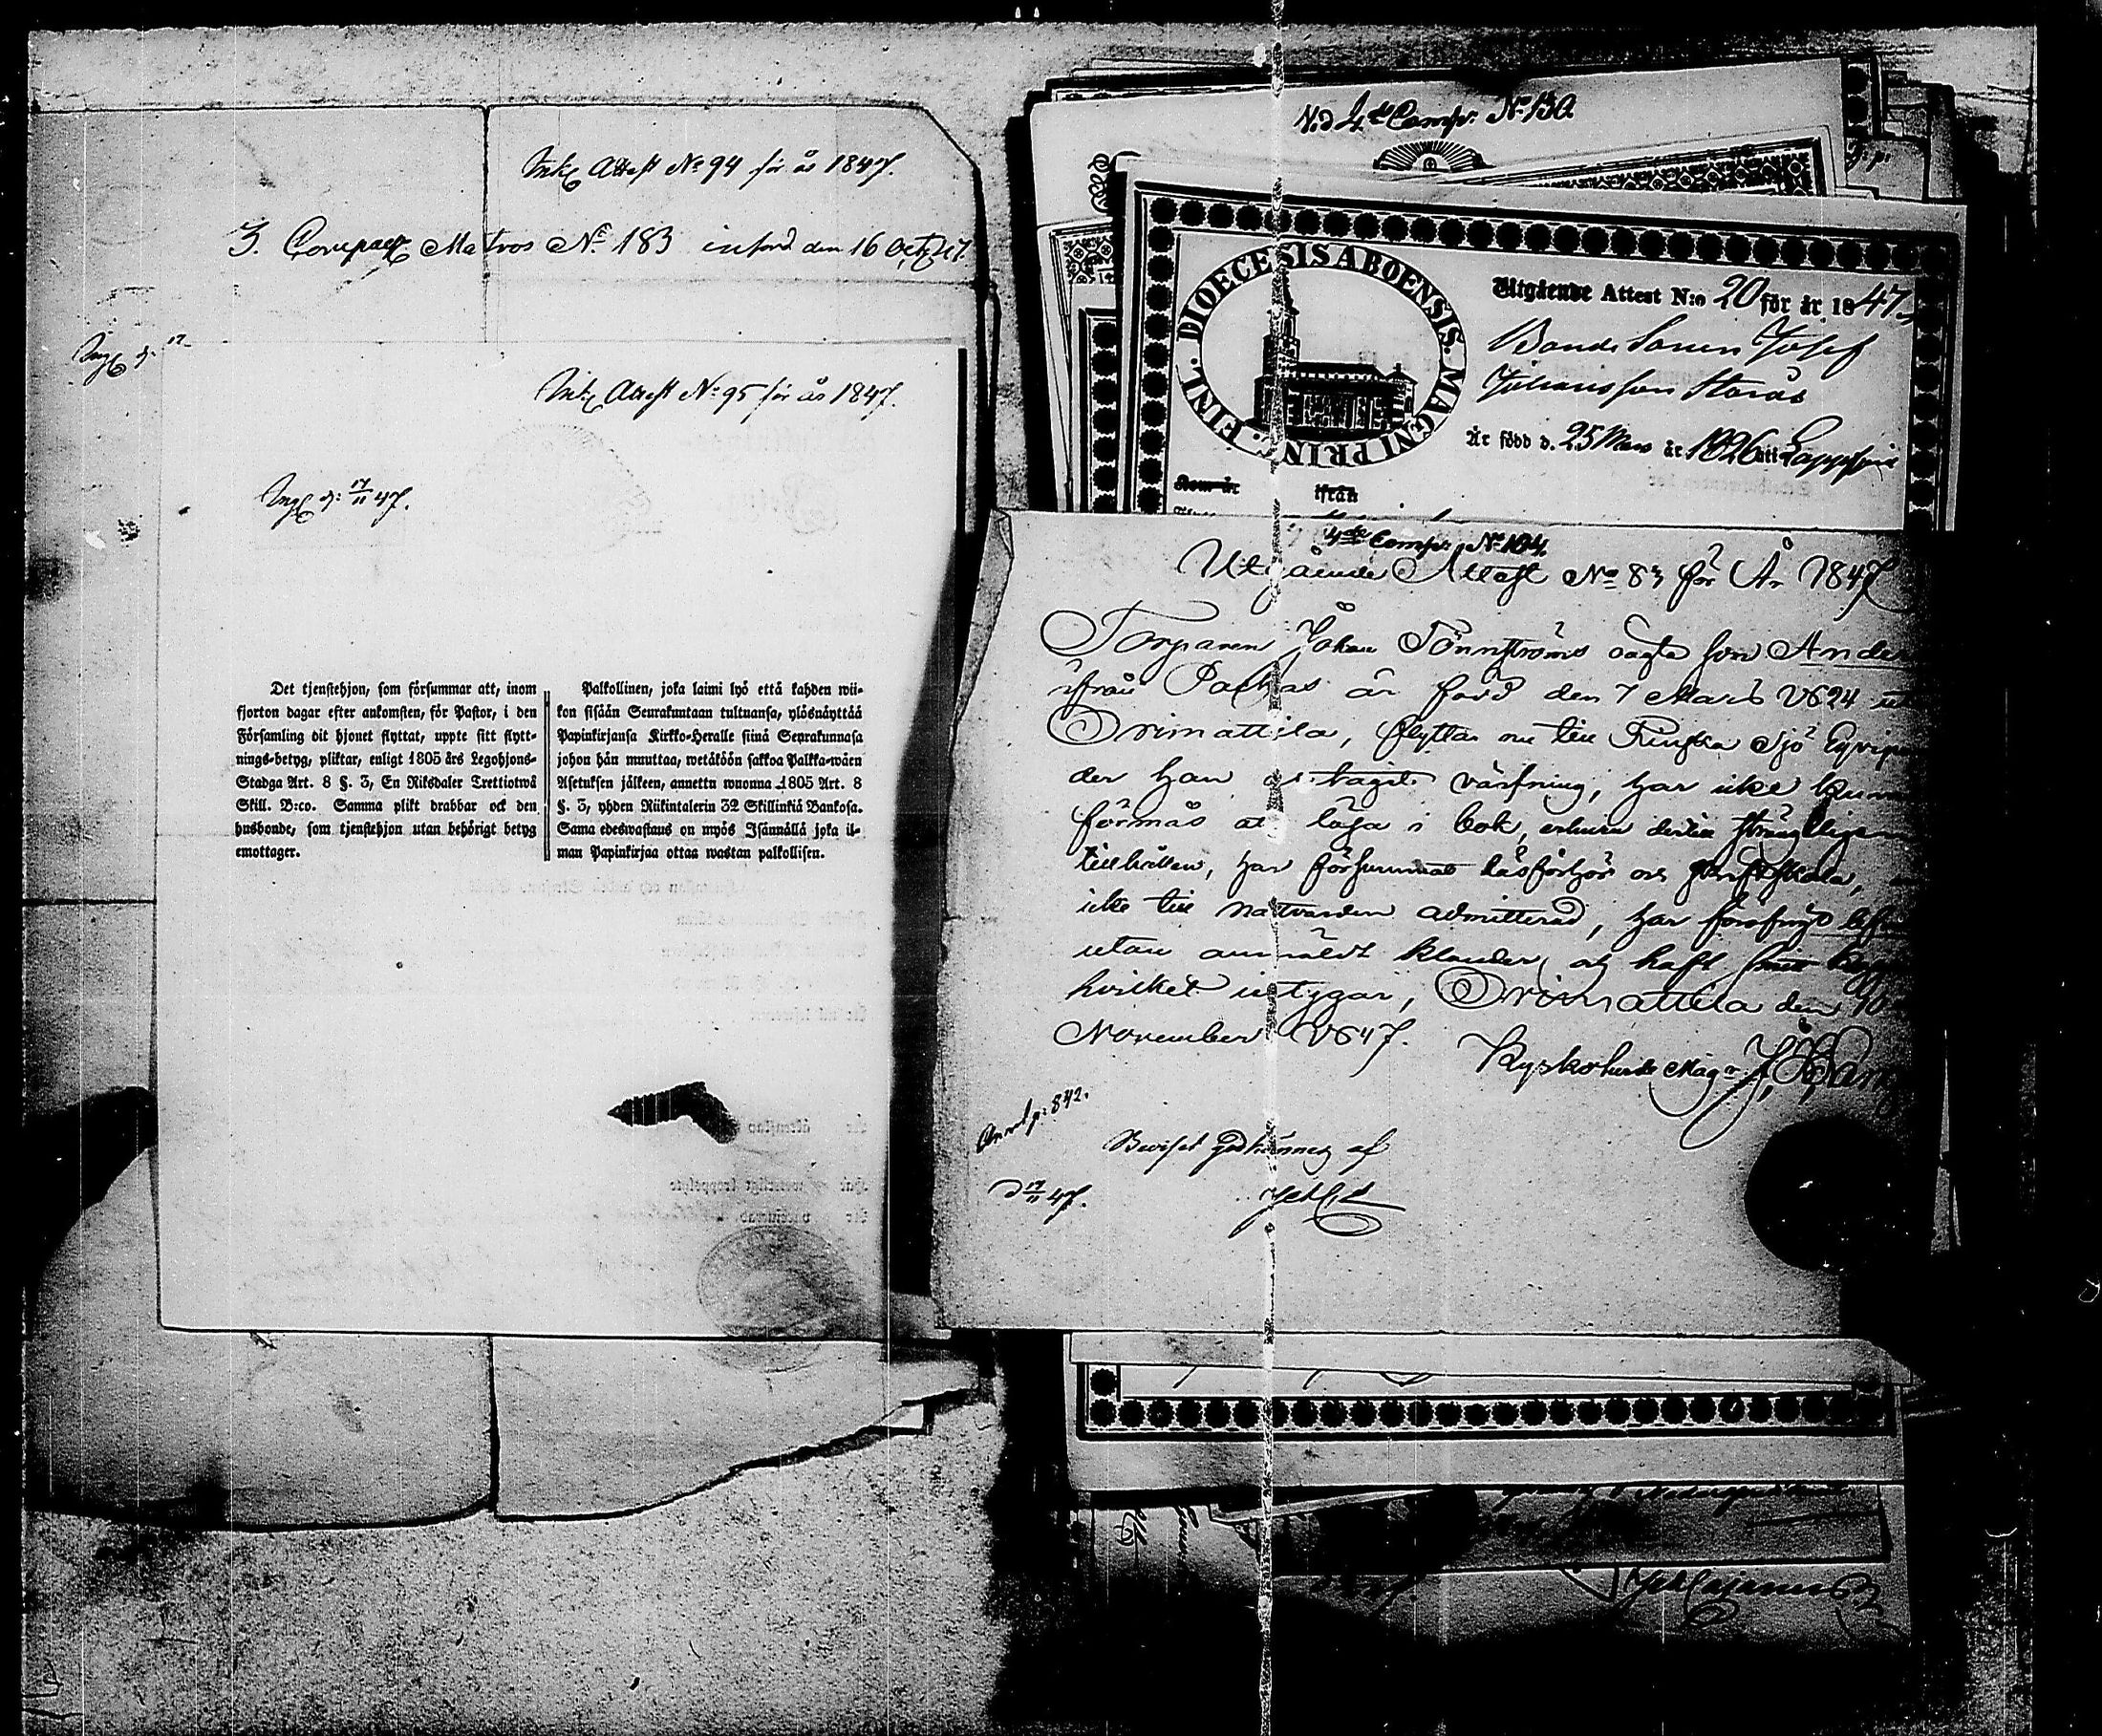 Ink. Attest No 94 för år 1847.
3. Compag. Matros No 183 införd den 16 Oct. 47.
Ing. d: 17
Ink. Attest No 95 för år 1847.
Ing. d: 17/11 47.
Det tjenstehjon, som försummar att, inom
fjorton dagar efter ankomsten, för Pastor, i den
Församling dit hjonet flyttat, uppte sitt flytt-
nings-betyg, pliktar, enligt 1805 års Legohjons-
Stadga Art. 8 §. 3, En Riksdaler Trettiotwå
Skill. B:co. Samma plikt drabbar ock den
husbonde, som tjenstehjon utan behörigt betyg
emottager.
Palkollinen, joka laimi lyö että kahden wii-
kon sisään Seurakuntaan tultuansa, ylösnäyttää
Papinkirjansa Kirkko-Heralle siinä Seurakunnasa
johon hän muuttaa, wetäköön sakkoa Palkka-wäen
Asetuksen jälkeen, annettu wuonna 1805 Art. 8
§. 3, yhden Riikintalerin 32 Skillinkiä Bankosa.
Sama edeswastaus on myös Isännällä joka il-
man Papinkirjaa ottaa wastan palkollisen.
4de Comp. No 130.
DIOECESIS ABOENSIS. MAGNI PRINC. FINL.
Utgående Attest N:o 20 för år 1847.
Bonde Sonen Josef
Johansson Storås
Är född d. 25 Mars år 1826 uti Lappfjärd
Som är ifrån
4de Comp. No 104
Utgående Attest No 83 för År 1847
Torparen Johan Tönnströms ägta son Ander
ifrån är född den 7 Mars 1824 ut
Orimattila, flyttar nu till Finska Sjö Eqvipa
der han tagit värfning, har icke kun
förmås at läsa i bok, ehuru dertill
tillhållen, har försummat läsförhör och skriftskola,
icke till nattvarden admitterad, har för öfrigt
utan anmäldt klander, och haft
hvilket intygar, Orimattila den 10
November 1847.
Kyrkoherde
Annot. p: 842.
Beviset godkännes af
d 17/11 47.